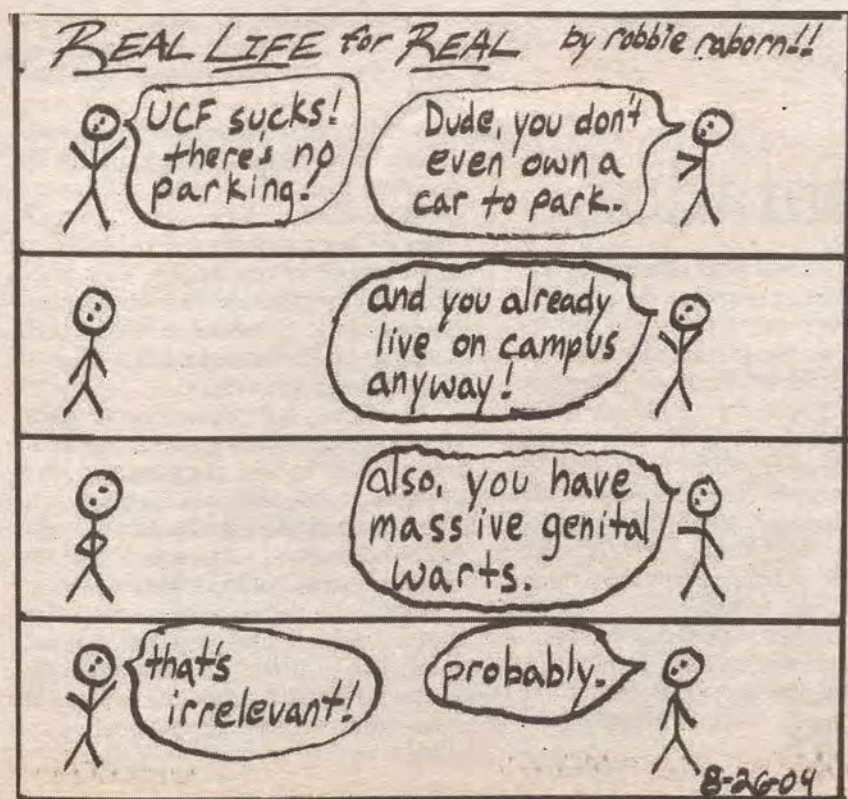 REAL LIFE for REAL by robbie raborn!!
UCF sucks!
there's no
parking!
Dude, you don't
even own a
car to park.
and you already
live on campus
anyway!
also, you have
massive genital
warts.
that's
irrelevant!
probably.
8-26-04